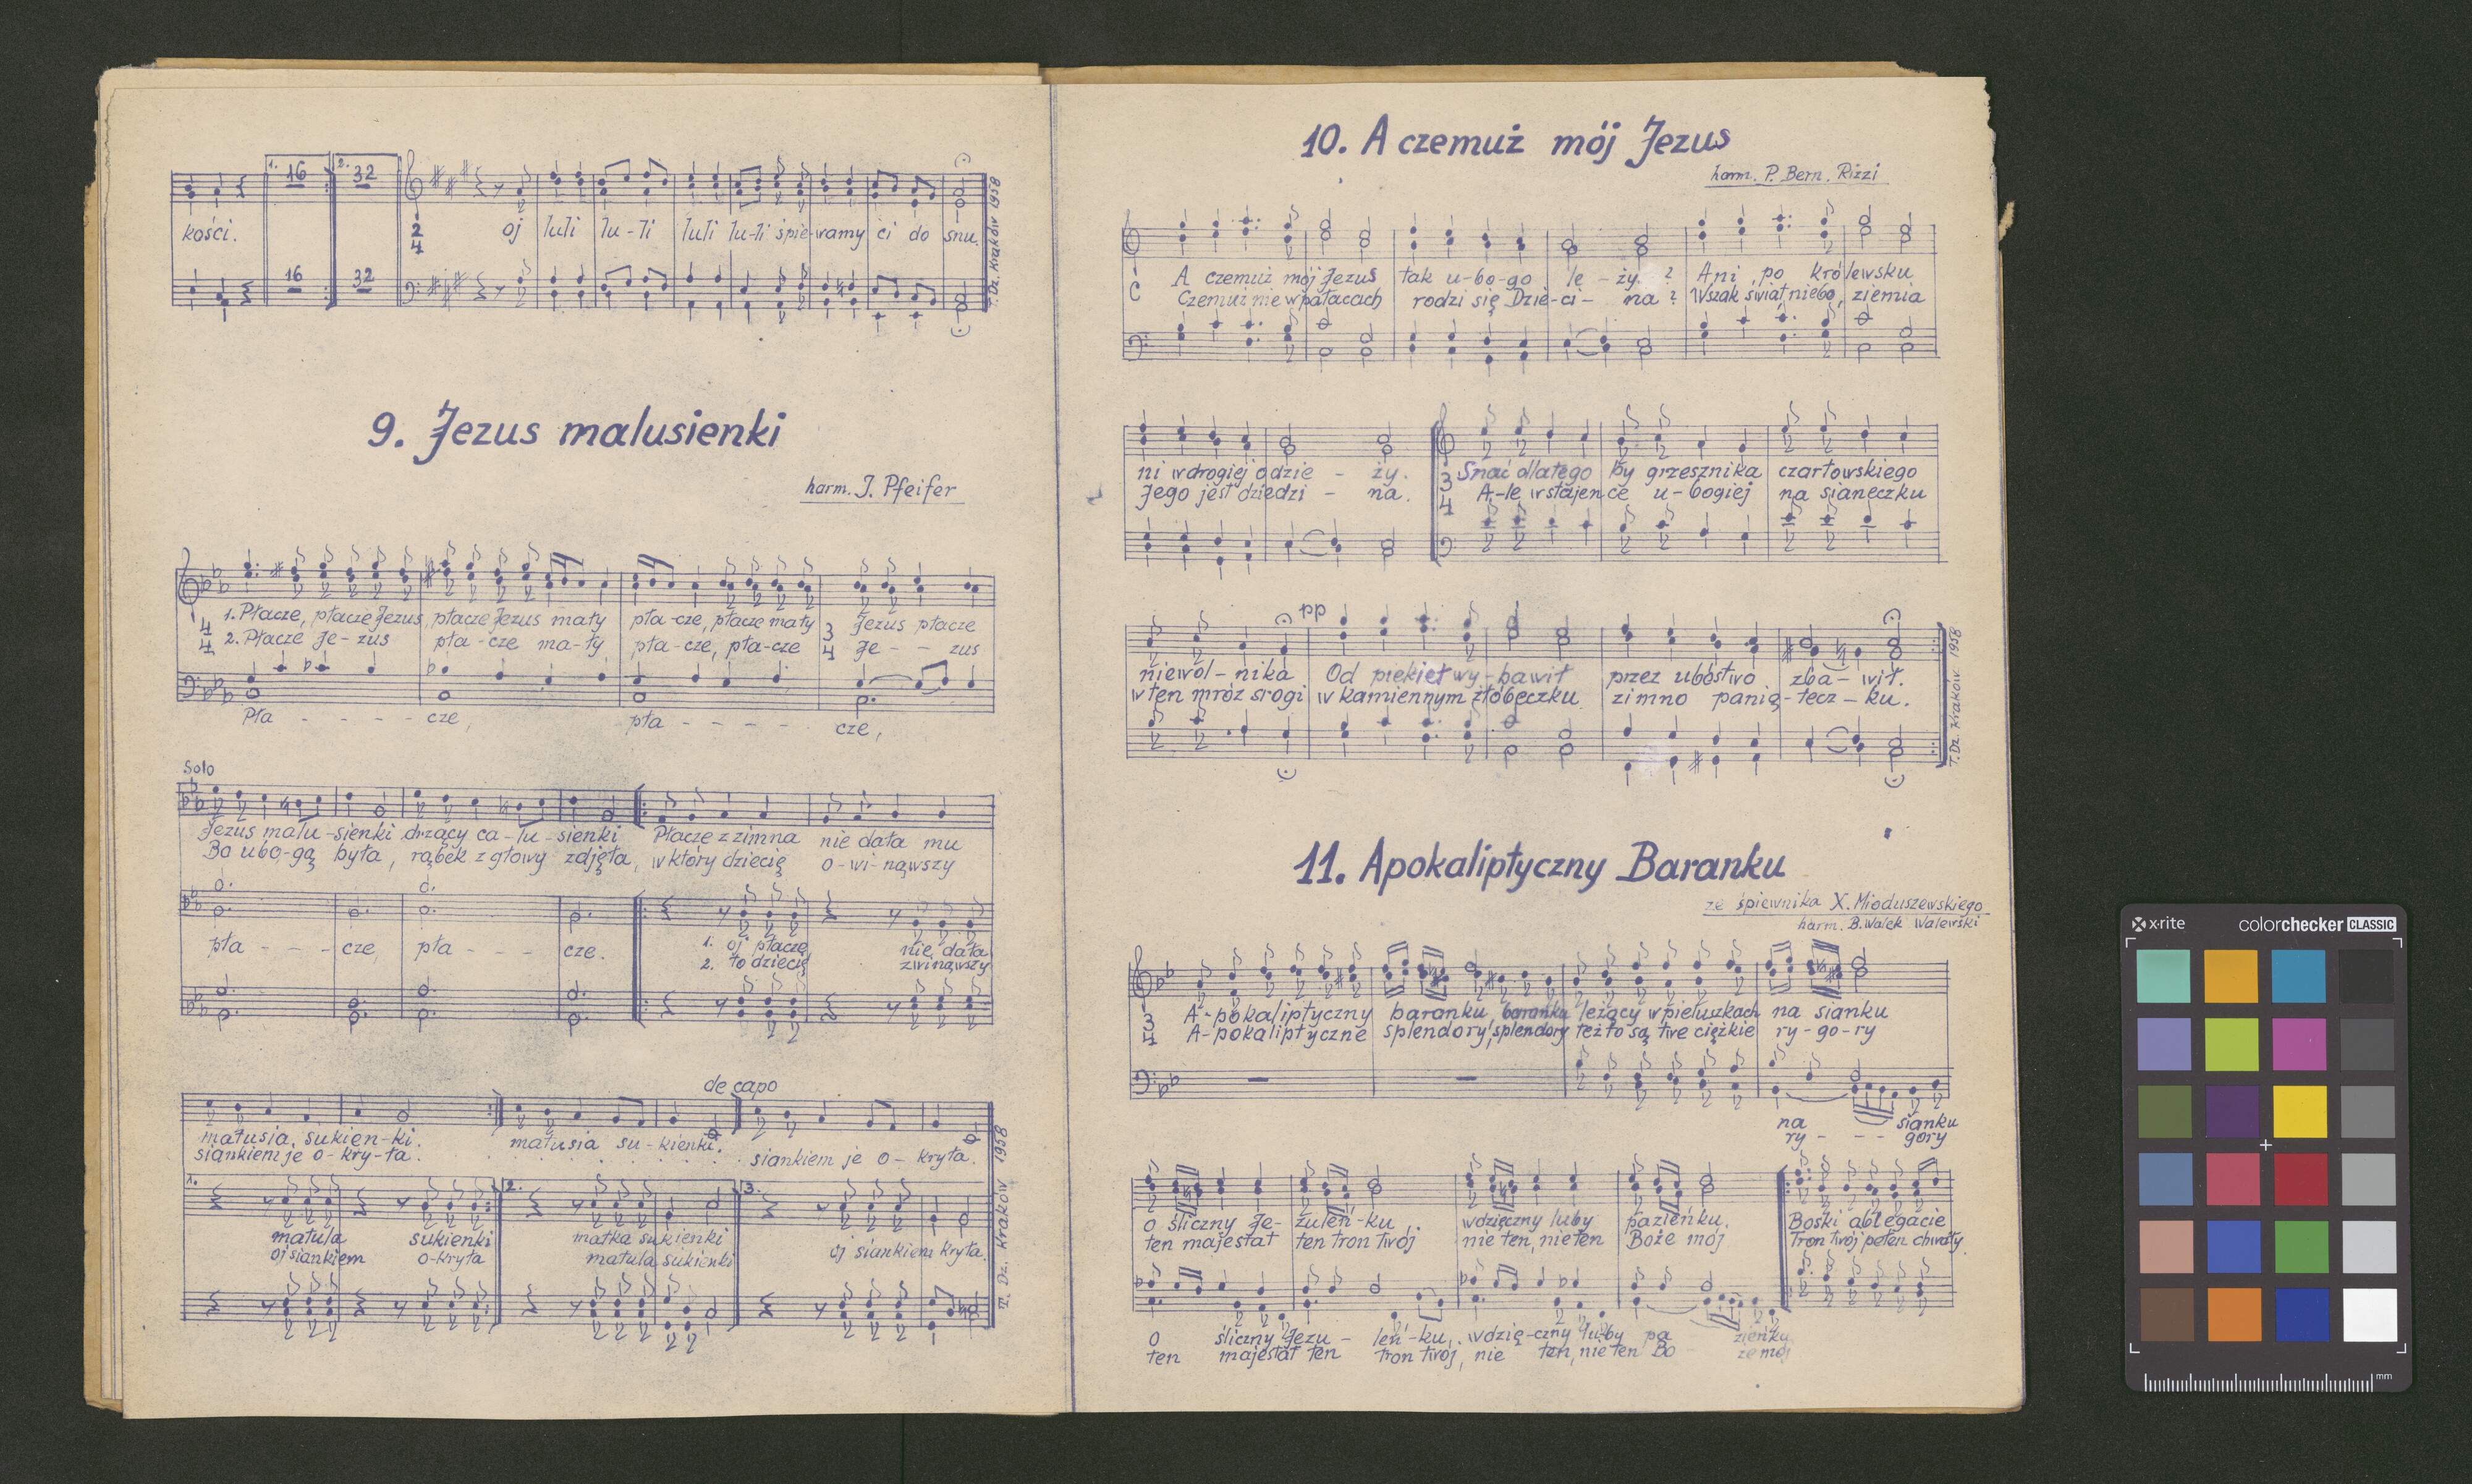 1. 16 2. 32
kości. 2 4 oj luli lu-li luli lu-li śpie-wamy ci do snu.
16 32
T. Dz. Kraków 1958
9. Jezus malusienki
harm. J. Pfeifer
1. Płacze, płacze Jezus, płacze Jezus mały pła-cze, płacze mały 3 Jezus płacze
2. Płacze Je-zus pła-cze ma-ły pła-cze, pła-cze 4 Je - - zus
4 4
Pła - - - - cze, pła - - - - cze,
Solo
Jezus malu-sienki drżący ca-lu-sienki Płacze z zimna nie dała mu
Bo ubo-gą była, rąbek z głowy zdjęła, w który dziecię o-wi-nąwszy
pła - - - cze, pła - - - cze. 1. oj płacze nie dała
2. to dziecię zwinąwszy
de capo
matusia, sukien-ki. matusia su-kienki.
siankiem je o-kry-ła. siankiem je o-kryła.
1. 2. 3.
matula sukienki matka sukienki oj siankiem kryła.
oj siankiem o-kryła matula sukienki
T. Dz. Kraków 1958
10. A czemuż mój Jezus
harm. P. Bern. Rizzi
C A czemuż mój Jezus tak u-bo-go le-ży? Ani po królewsku
Czemuż nie w pałacach rodzi się Dzie-ci- na? Wszak świat, niebo, ziemia
ni w drogiej odzie - ży. 3 Snać dlatego by grzesznika czartowskiego
Jego jest dziedzi - na. 4 A-le w stajence u-bogiej na sianeczku
pp
niewol-nika Od piekieł wy-bawił przez ubóstwo zba-wił.
w ten mróz srogi w kamiennym żłóbeczku zimno panią-tecz-ku.
T. Dz. Kraków 1958
11. Apokaliptyczny Baranku
ze śpiewnika X. Mioduszewskiego
harm. B. Wałek Walewski
3 A-pokaliptyczny baranku, baranku leżący w pieluszkach na sianku
4 A-pokaliptyczne splendory, splendory też to są twe ciężkie ry-go-ry
na sianku
ry - - - gory
O śliczny Je- zuleń-ku, wdzięczny luby pazieńku. Boski ablegacie
ten majestat ten tron twój nie ten, nie ten Boże mój Tron twój pełen chwały
O śliczny Jezu - leń-ku, wdzię-czny luby pa zieńku
ten majestat ten tron twój, nie ten, nie ten Bo - że mój
x-rite colorchecker CLASSIC
mm